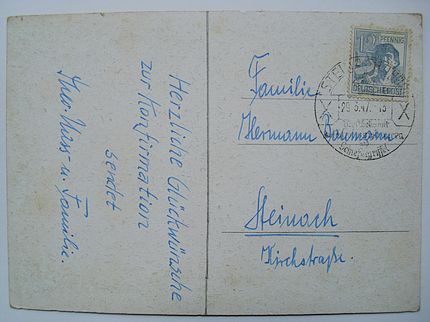 Herzliche Glückwünsche
zur Konfirmation
sendet
u. Familie.
12 PFENNIG
DEUTSCHE POST
Familie
Hermann Baumann
Steinach
Kirchstraße.